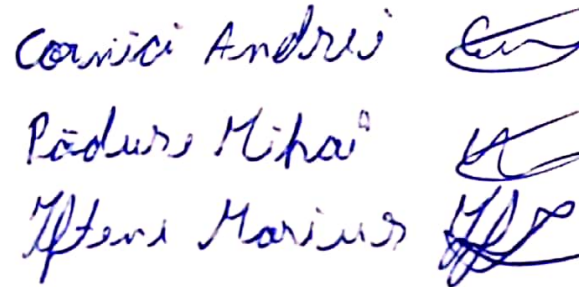 Cornici Andrei
Pădure Mihai
Ifteni Marius